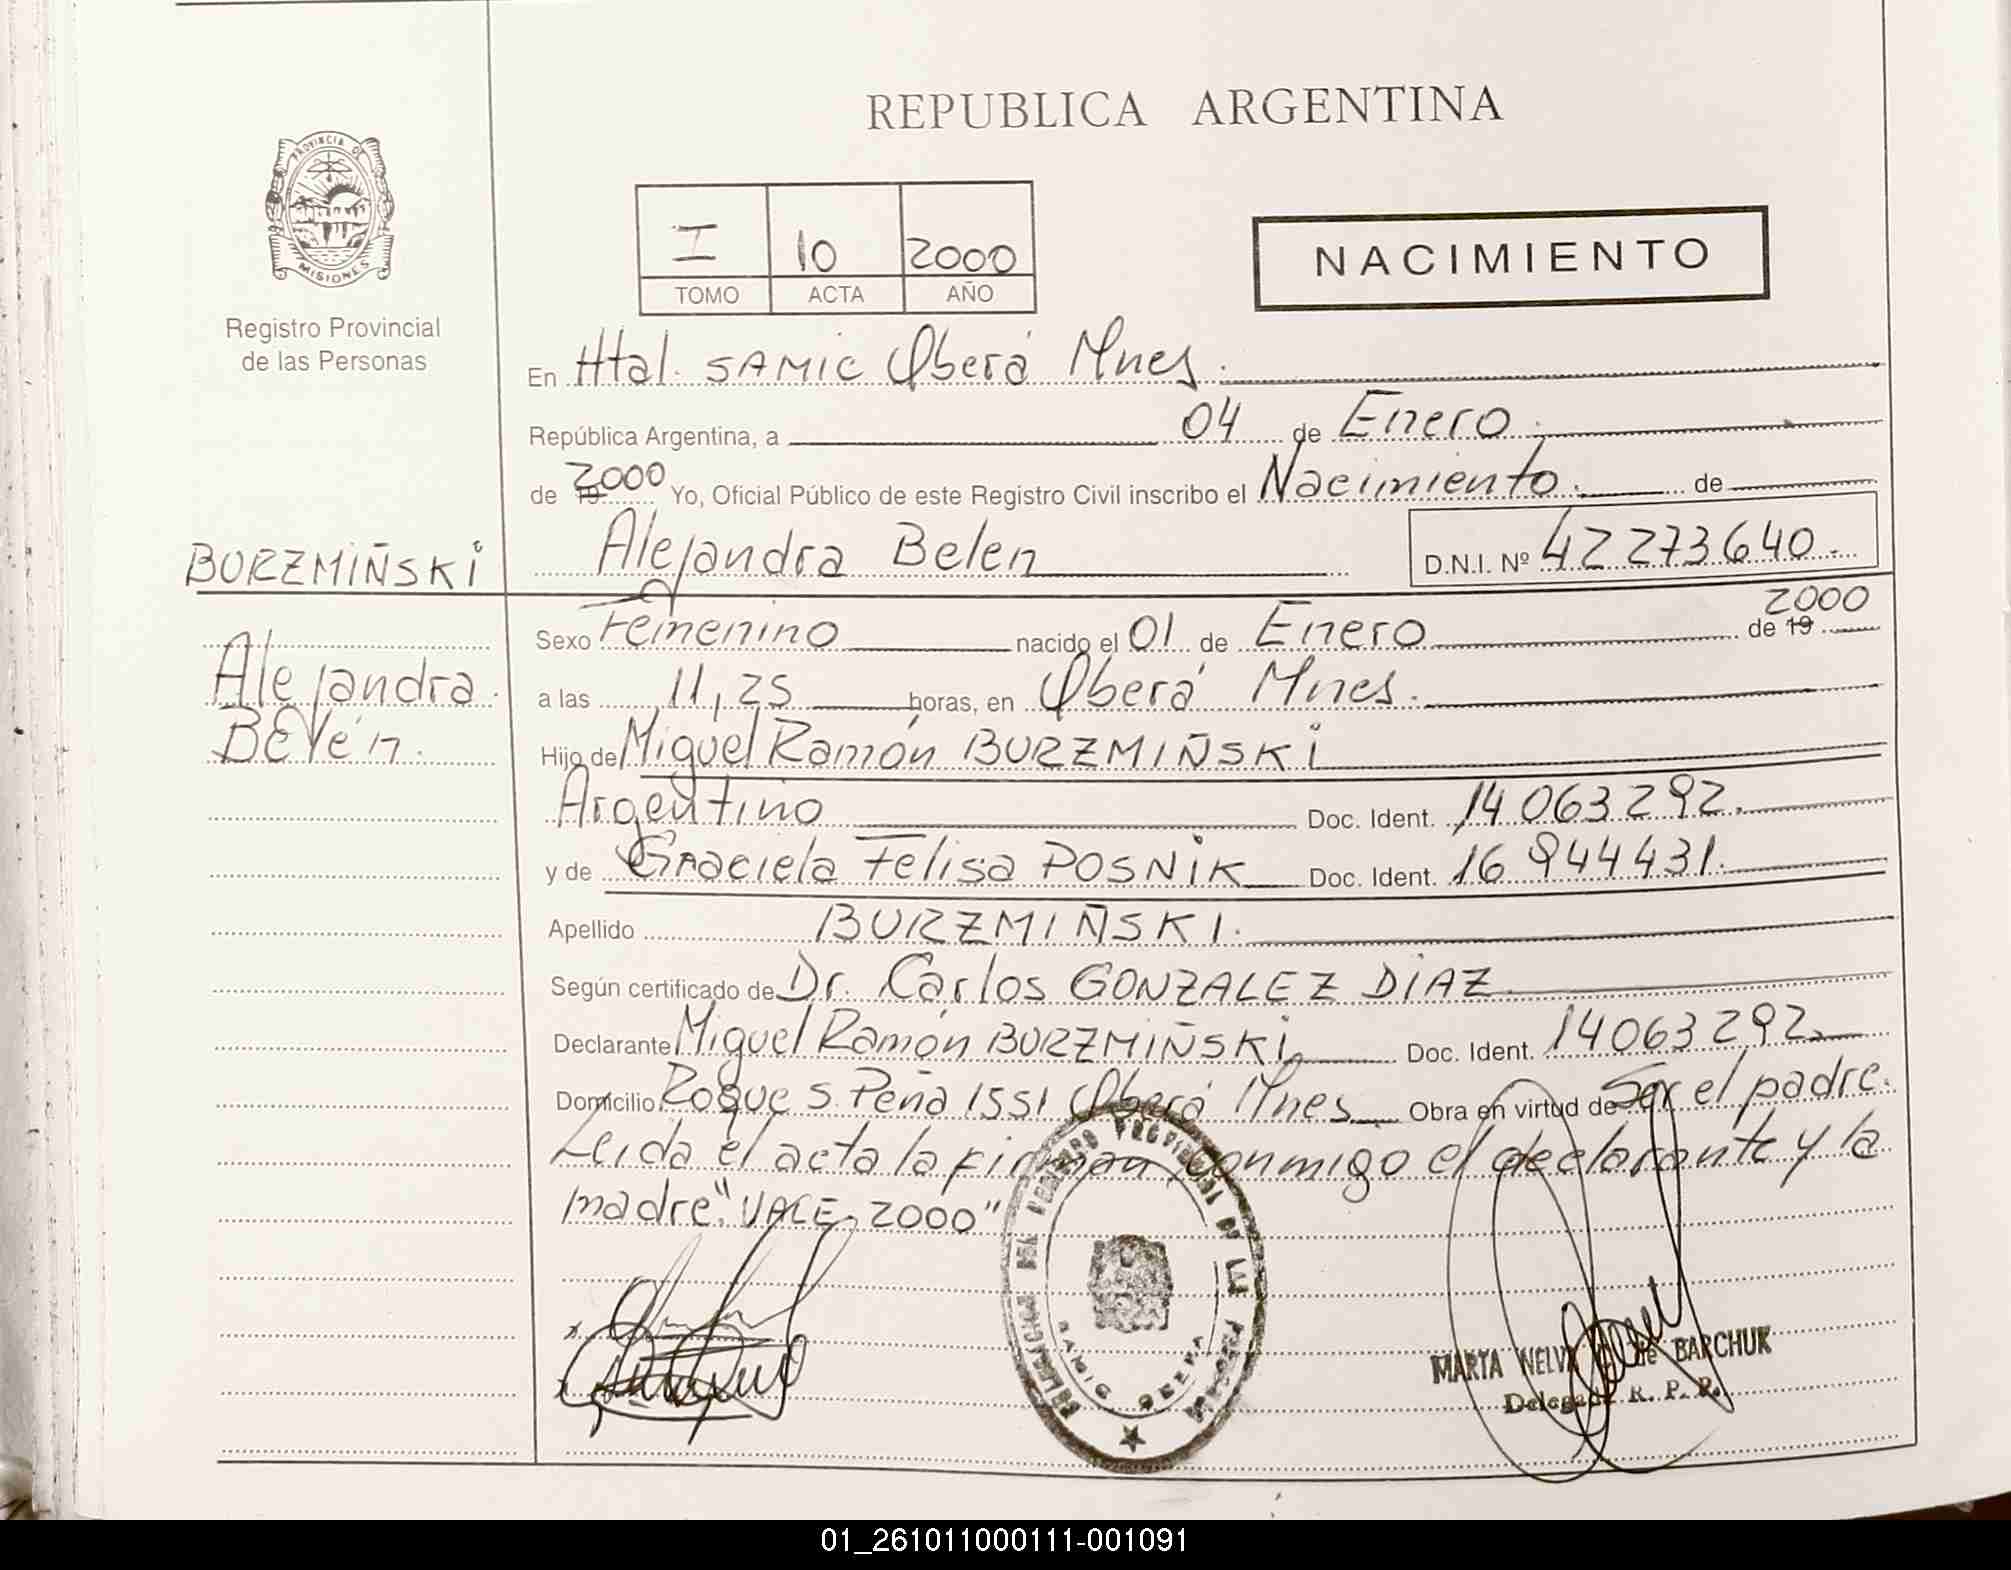 REPUBLICA ARGENTINA
PROVINCIA DE
MISIONES
Registro Provincial
de las Personas
I 10 2000
TOMO ACTA AÑO
NACIMIENTO
En Htal. SAMIC Oberá Mnes.
República Argentina, a 04 de Enero
de 19 2000 Yo, Oficial Público de este Registro Civil inscribo el Nacimiento. de
BURZMIÑSKI
Alejandra Belen D.N.I. Nº 42273640.
Alejandra
Belén.
Sexo Femenino nacido el 01 de Enero de 19 2000
a las 11,25 horas, en Oberá Mnes.
Hijo de Miguel Ramón BURZMIÑSKI
Argentino Doc. Ident. 14 063 292.
y de Graciela Felisa POSNIK Doc. Ident. 16 944431.
Apellido BURZMIÑSKI.
Según certificado de Dr. Carlos GONZALEZ DIAZ
Declarante Miguel Ramón BURZMIÑSKI Doc. Ident. 14063292
Domicilio Roque S. Peña 1551 Oberá Mnes Obra en virtud de Ser el padre.
Leida el acta la firman conmigo el declarante y la
madre. "VALE 2000"
DELEGACION DEL REGISTRO PROVINCIAL DE LAS PERSONAS
SAMIC OBERA
MARTA NELVA de BARCHUK
Delegada R. P. P.
01_261011000111-001091